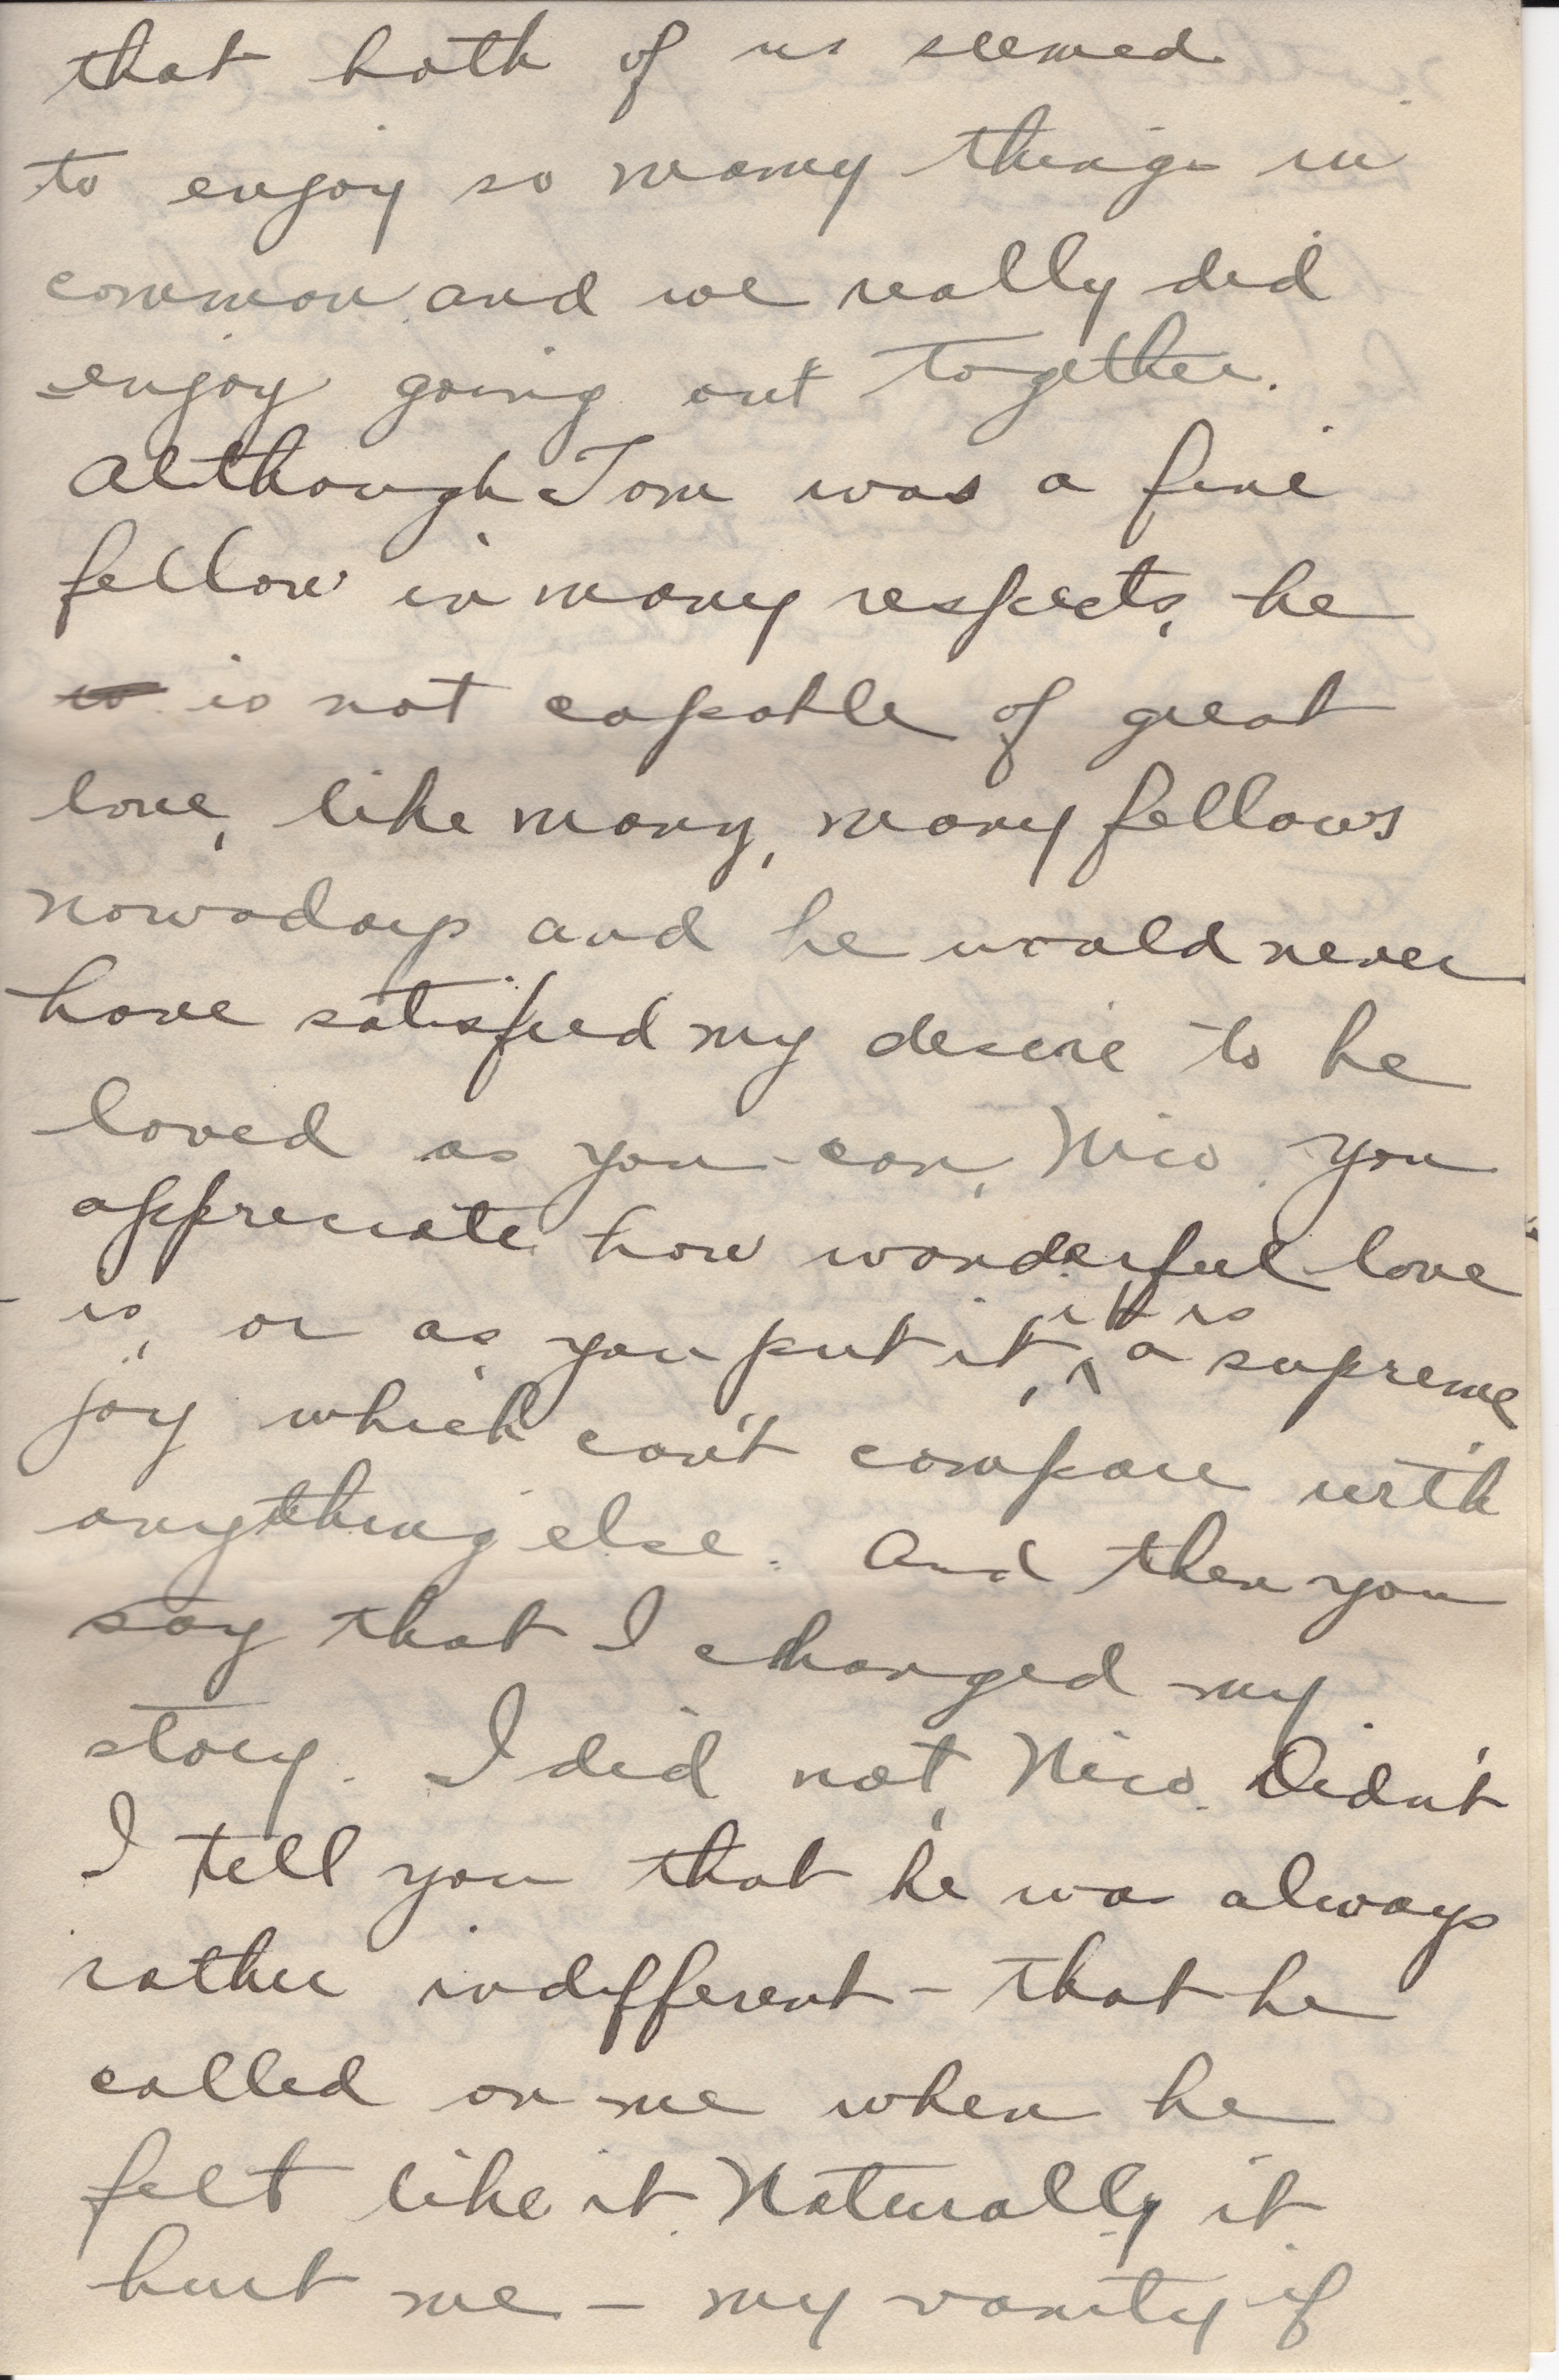 that both of us seemed
to enjoy so many things in
common and we really did
enjoy going out together.
Although Tom was a fine
fellow in many respects, he
is not capable of great
love, like many, many fellows
nowadays and he would never
have satisfied my desire to be
loved as you can, Nico. You
appreciate how wonderful love
is, or as, you put it, it is a supreme
joy which can't compare with
anything else. And then you
say that I changed my
story. I did not, Nico. Didn't
I tell you that he was always
rather indifferent - that he
called on me when he
felt like it. Naturally it
hurt me - my vanity if